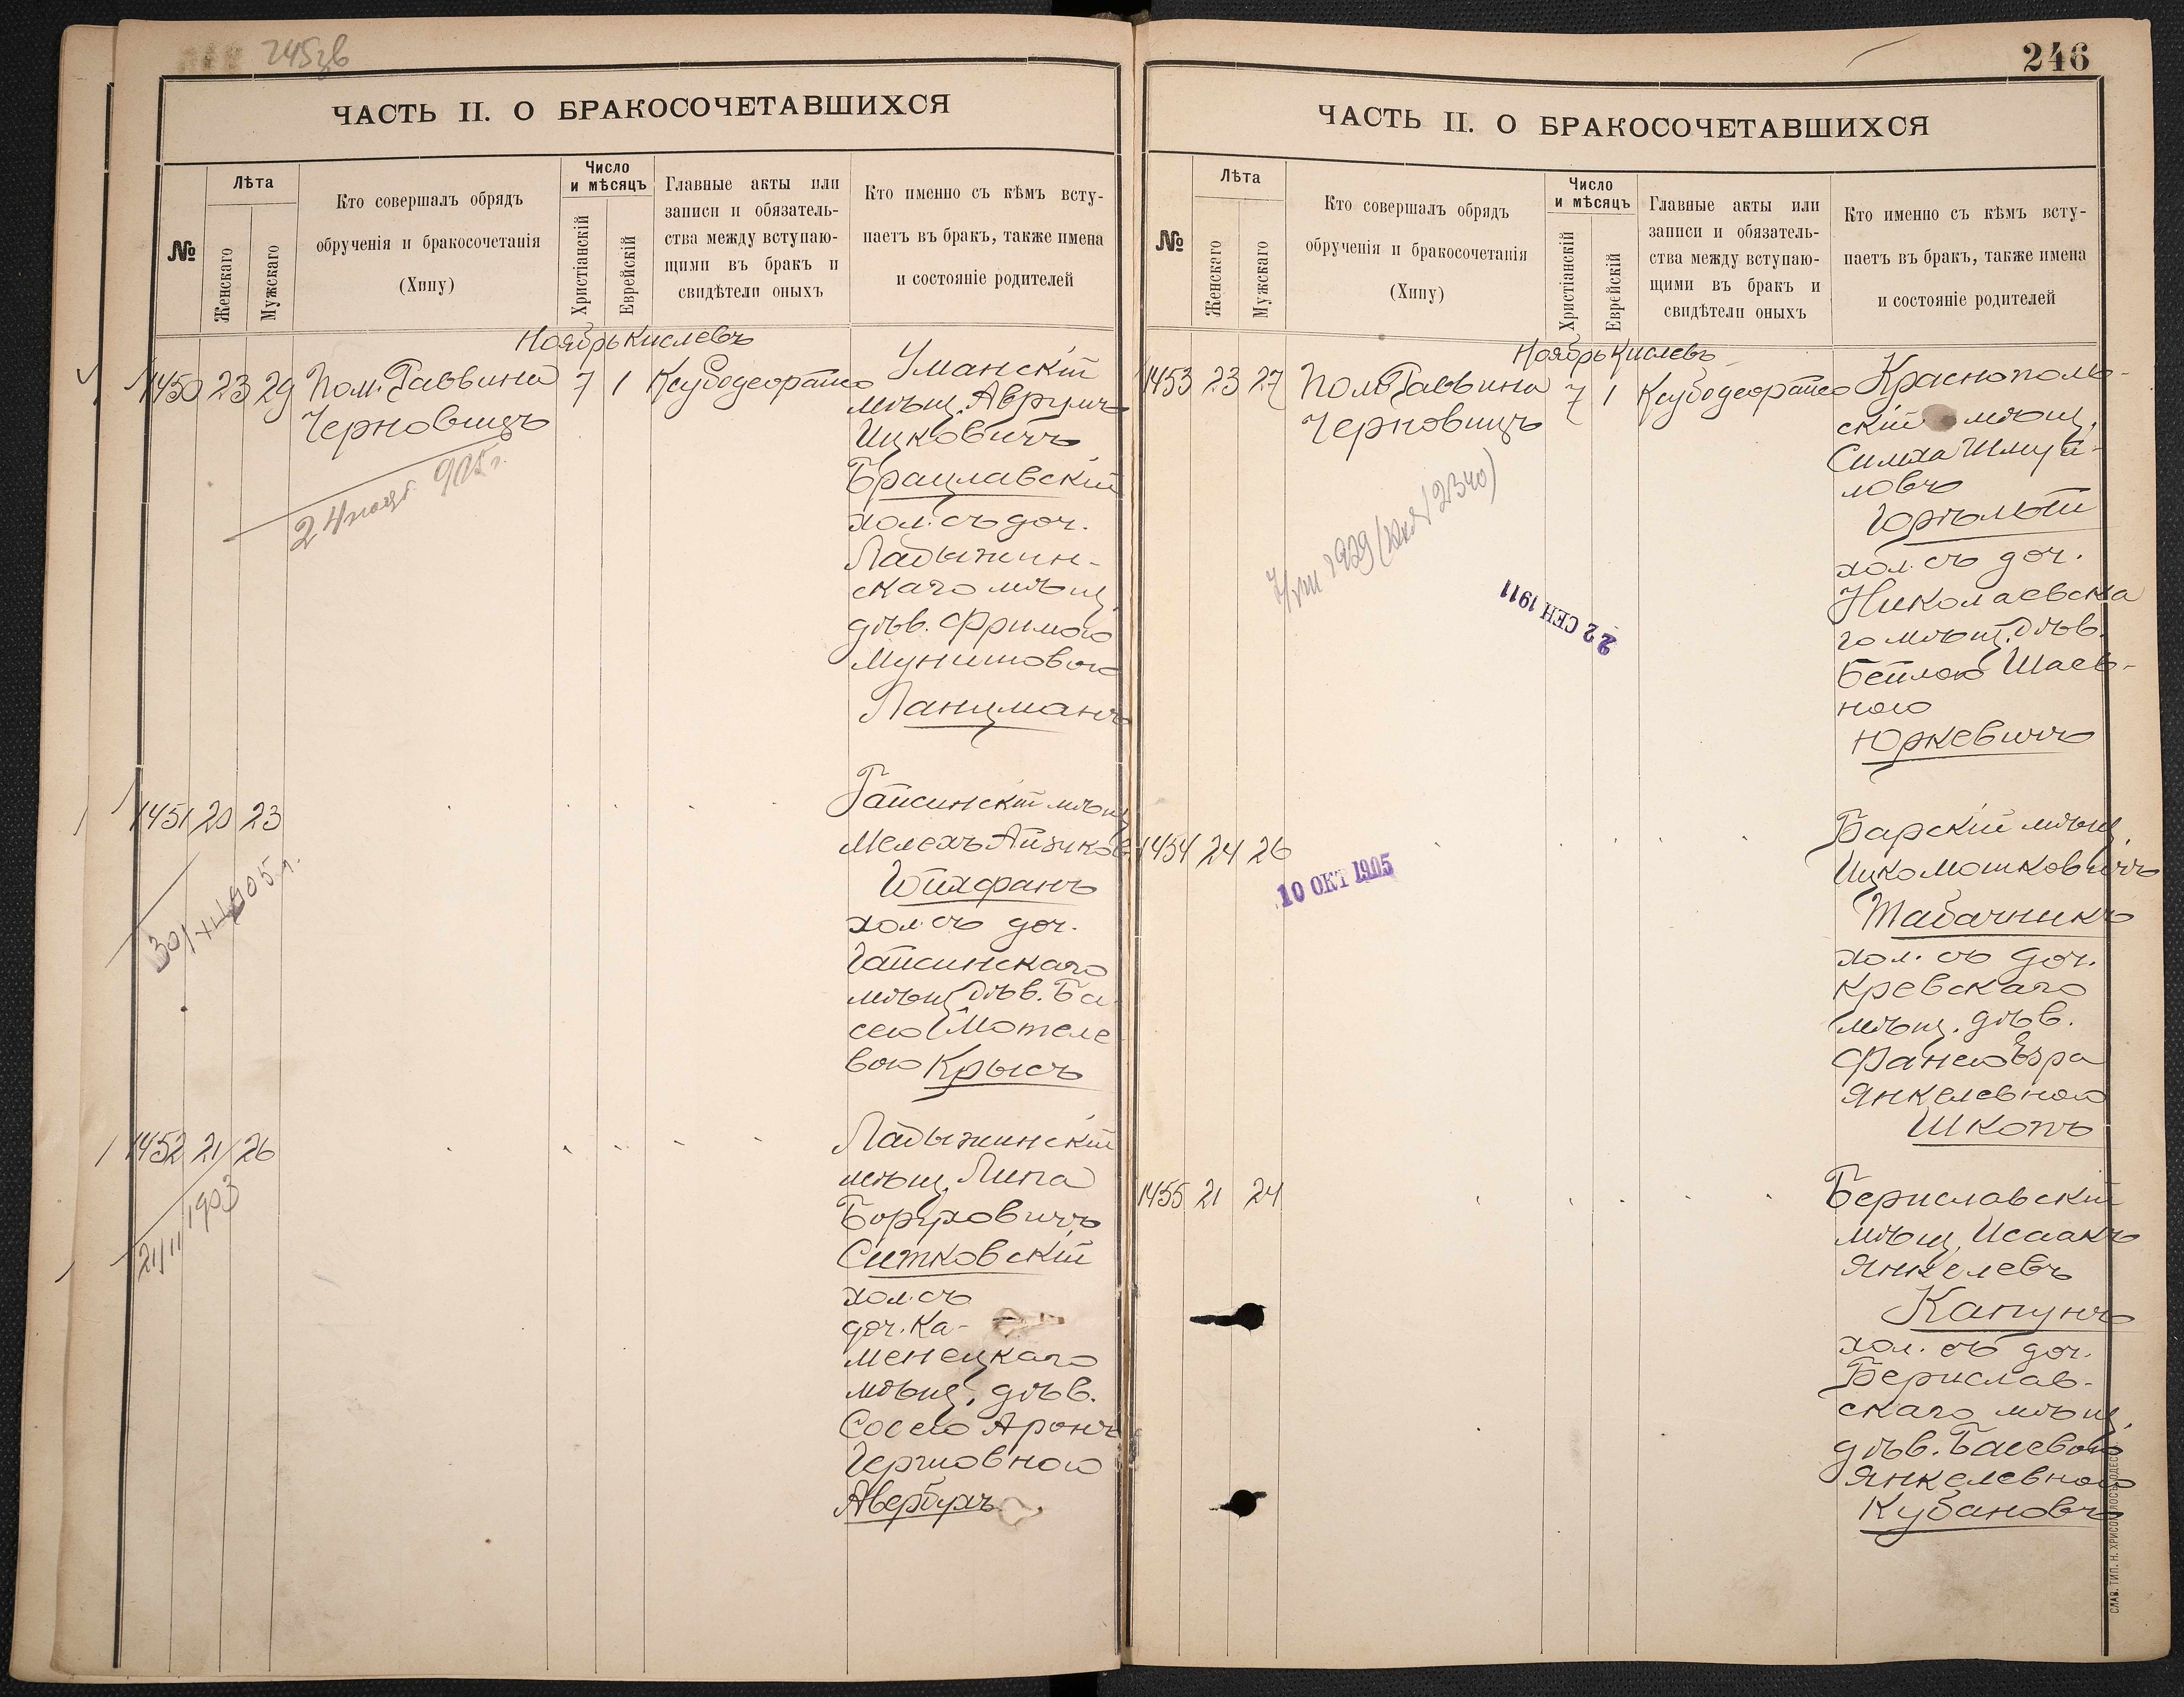 245 зв
ЧАСТЬ II. О БРАКОСОЧЕТАВШИХСЯ
№
Лѣта
Женскаго
Мужскаго
Кто совершалъ обрядъ
обрученія и бракосочетанія
(Хипу)
Число
и мѣсяцъ
Христіанскій
Еврейскій
Главные акты или
записи и обязатель-
ства между вступаю-
щими въ бракъ и
свидѣтели оныхъ
Кто именно съ кѣмъ всту-
паетъ въ бракъ, также имена
и состояніе родителей
Ноябрь Кислевъ
1450 23 29 Пом. Раввина 7 1
Черновицъ
24 905 г.
Уманскій
мѣщ. Аврумъ
Ицковичъ
Брацлавскій
хол. съ доч.
Ладыжин-
скаго мѣщ.
дѣв. Фримою
Мунишовою
Ланцманъ
1451 20 23
30/XI 1905 г.
Гайсинскій мѣщ.
Мелехъ Айзиковъ
Шифранъ
хол. съ доч.
Гайсинскаго
мѣщ. дѣв. Ба
сею Мотеле
вою Крысъ
1452 21 26
21/II 1903
Ладыжинскій
мѣщ. Липа
Боруховичъ
Ситковскій
хол. съ
доч. Ка-
менецкаго
мѣщ. дѣв.
Соcею Аронъ
Гершовною
Авербухъ
246
ЧАСТЬ II. О БРАКОСОЧЕТАВШИХСЯ
№
Лѣта
Женскаго
Мужскаго
Кто совершалъ обрядъ
обрученія и бракосочетанія
(Хипу)
Число
и мѣсяцъ
Христіанскій
Еврейскій
Главные акты или
записи и обязатель-
ства между вступаю-
щими въ бракъ и
свидѣтели оныхъ
Кто именно съ кѣмъ всту-
паетъ въ бракъ, также имена
и состояніе родителей
Ноябрь Кислевъ
1453 23 27 Пом. Раввина 7 1
Черновицъ
7/VIII 1929
22 СЕН 1911
Краснополь-
скій мѣщ.
Симха Шмуй-
ловъ
хол. съ доч.
Николаевска
го мѣщ. дѣв.
Бейлою Шаев-
ною
Юркевичъ
1454 24 26
10 ОКТ 1905
Барскій мѣщ.
Ицко Мошковичъ
Табачникъ
хол. съ доч.
Кревскаго
мѣщ. дѣв.
Янкелевною
Шкопъ
1455 21 24
Бериславскій
мѣщ. Исаакъ
Янкелевъ
Капунъ
хол. съ доч.
Берислав-
скаго мѣщ.
дѣв. Басевою
Янкелевною
Кубановъ